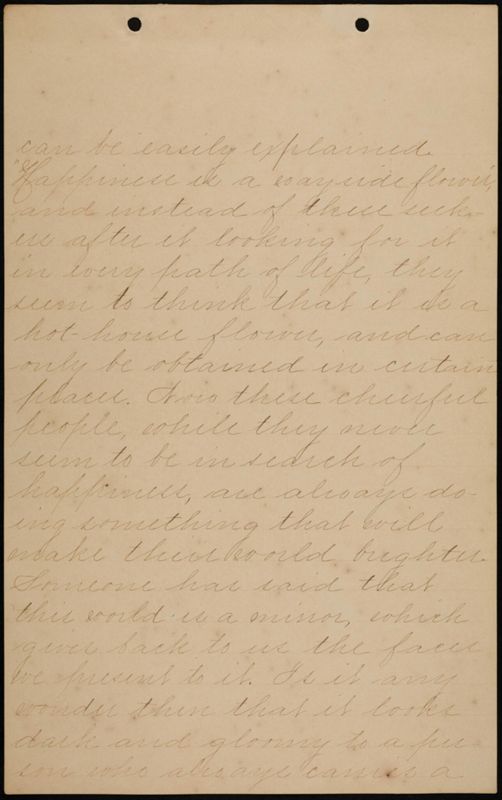 can be easily explained.
"Happiness is a wayside flower,"
and instead of these seek-
ers after it looking for it
in every path of life, they
seem to think that it is a
hot-house flower, and can
only be obtained in certain
places. Now these cheerful
people, while they never
seem to be in search of
happiness, are always do-
ing something that will
make their world brighter.
Someone has said that
this world is a mirror, which
gives back to us the faces
we present to it. Is it any
wonder then that it looks
dark and gloomy to a per-
son who always carries a